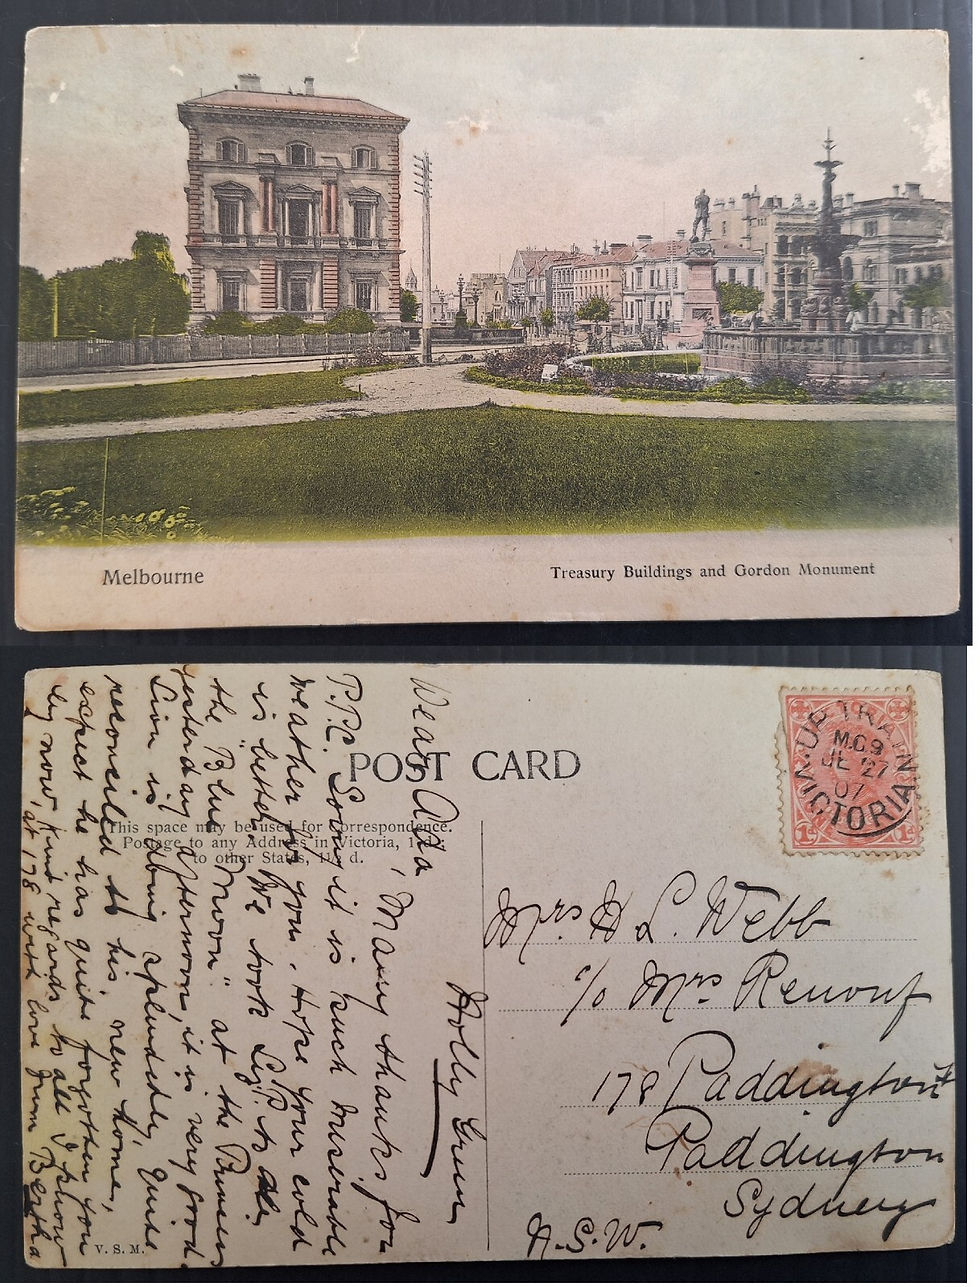 Melbourne
Treasury Buildings and Gordon Monument
POST CARD
This space may be used for Correspondence.
Postage to any Address in Victoria, 1d.
to other States, 1½d.
V. S. M.
UP TRAIN
M.G.9
JE 27
07
VICTORIA
1d 1d
Mrs H L. Webb
c/o Mrs Renouf
178 Paddington St
Paddington
Sydney
N.S.W.
Holly Green
Dear Ada, Many thanks for
P.P.C. Sorry it is such miserable
weather for you. Hope your cold
is better. We took to
the "Blue Moon" at the
yesterday afternoon, it is very good.
Lion is doing splendidly, quite
reconciled to his new home,
expect he has quite forgotten you
by now, Kind regards to all I know
at 178 with love from Bertha